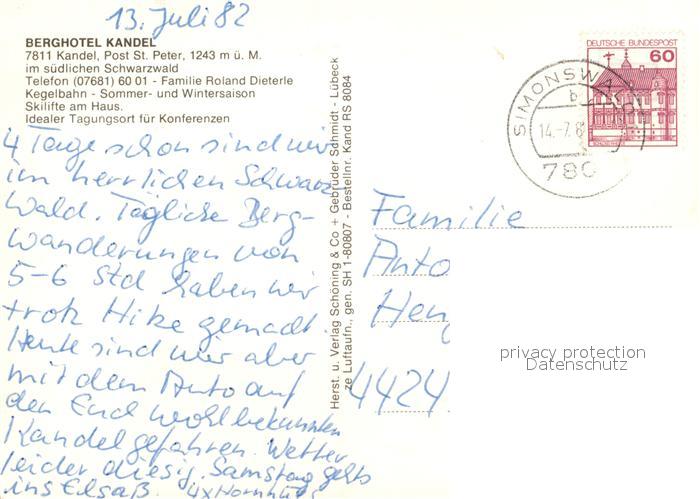 13. Juli 82
BERGHOTEL KANDEL
7811 Kandel, Post St. Peter, 1243 m ü. M.
im südlichen Schwarzwald
Telefon (07681) 60 01 - Familie Roland Dieterle
Kegelbahn - Sommer- und Wintersaison
Skilifte am Haus.
Idealer Tagungsort für Konferenzen
4 Tage schon sind wir
im herrlichen Schwarz
wald. Tägliche Berg-
wanderungen von
5-6 Std haben wir
trotz Hitze gemacht.
Heute sind wir aber
mit dem Auto auf
den Euch wohlbekannten
Kandel gefahren. Wetter
leider diesig. Samstag gehts
ins Elsaß.
Herst. u. Verlag Schöning & Co + Gebrüder Schmidt - Lübeck
ze Luftaufn., gen. SH 1-80807 - Bestellnr. Kand RS 8084
DEUTSCHE BUNDESPOST
60
SIMONSWALD
b
14.-7.8
780
Familie
Anto
Hen
4424
privacy protection
Datenschutz